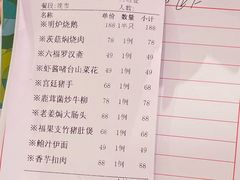 餐段:晚市
人数:
名称 单价 数量 小计
※明炉烧鹅 188 1半只 188
※茨菇焖烧肉 78 1例 78
※六福罗汉斋 49 1例 49
※虾酱啫台山菜花 49 1例 49
※宫廷猪手 68 1例 68
※鹿茸菌炒牛柳 78 1例 78
※老姜焗大肠头 68 1例 68
※福果支竹猪肚煲 88 1例 88
※鲍汁伊面 49 1例 49
※香芋扣肉 68 1例 68